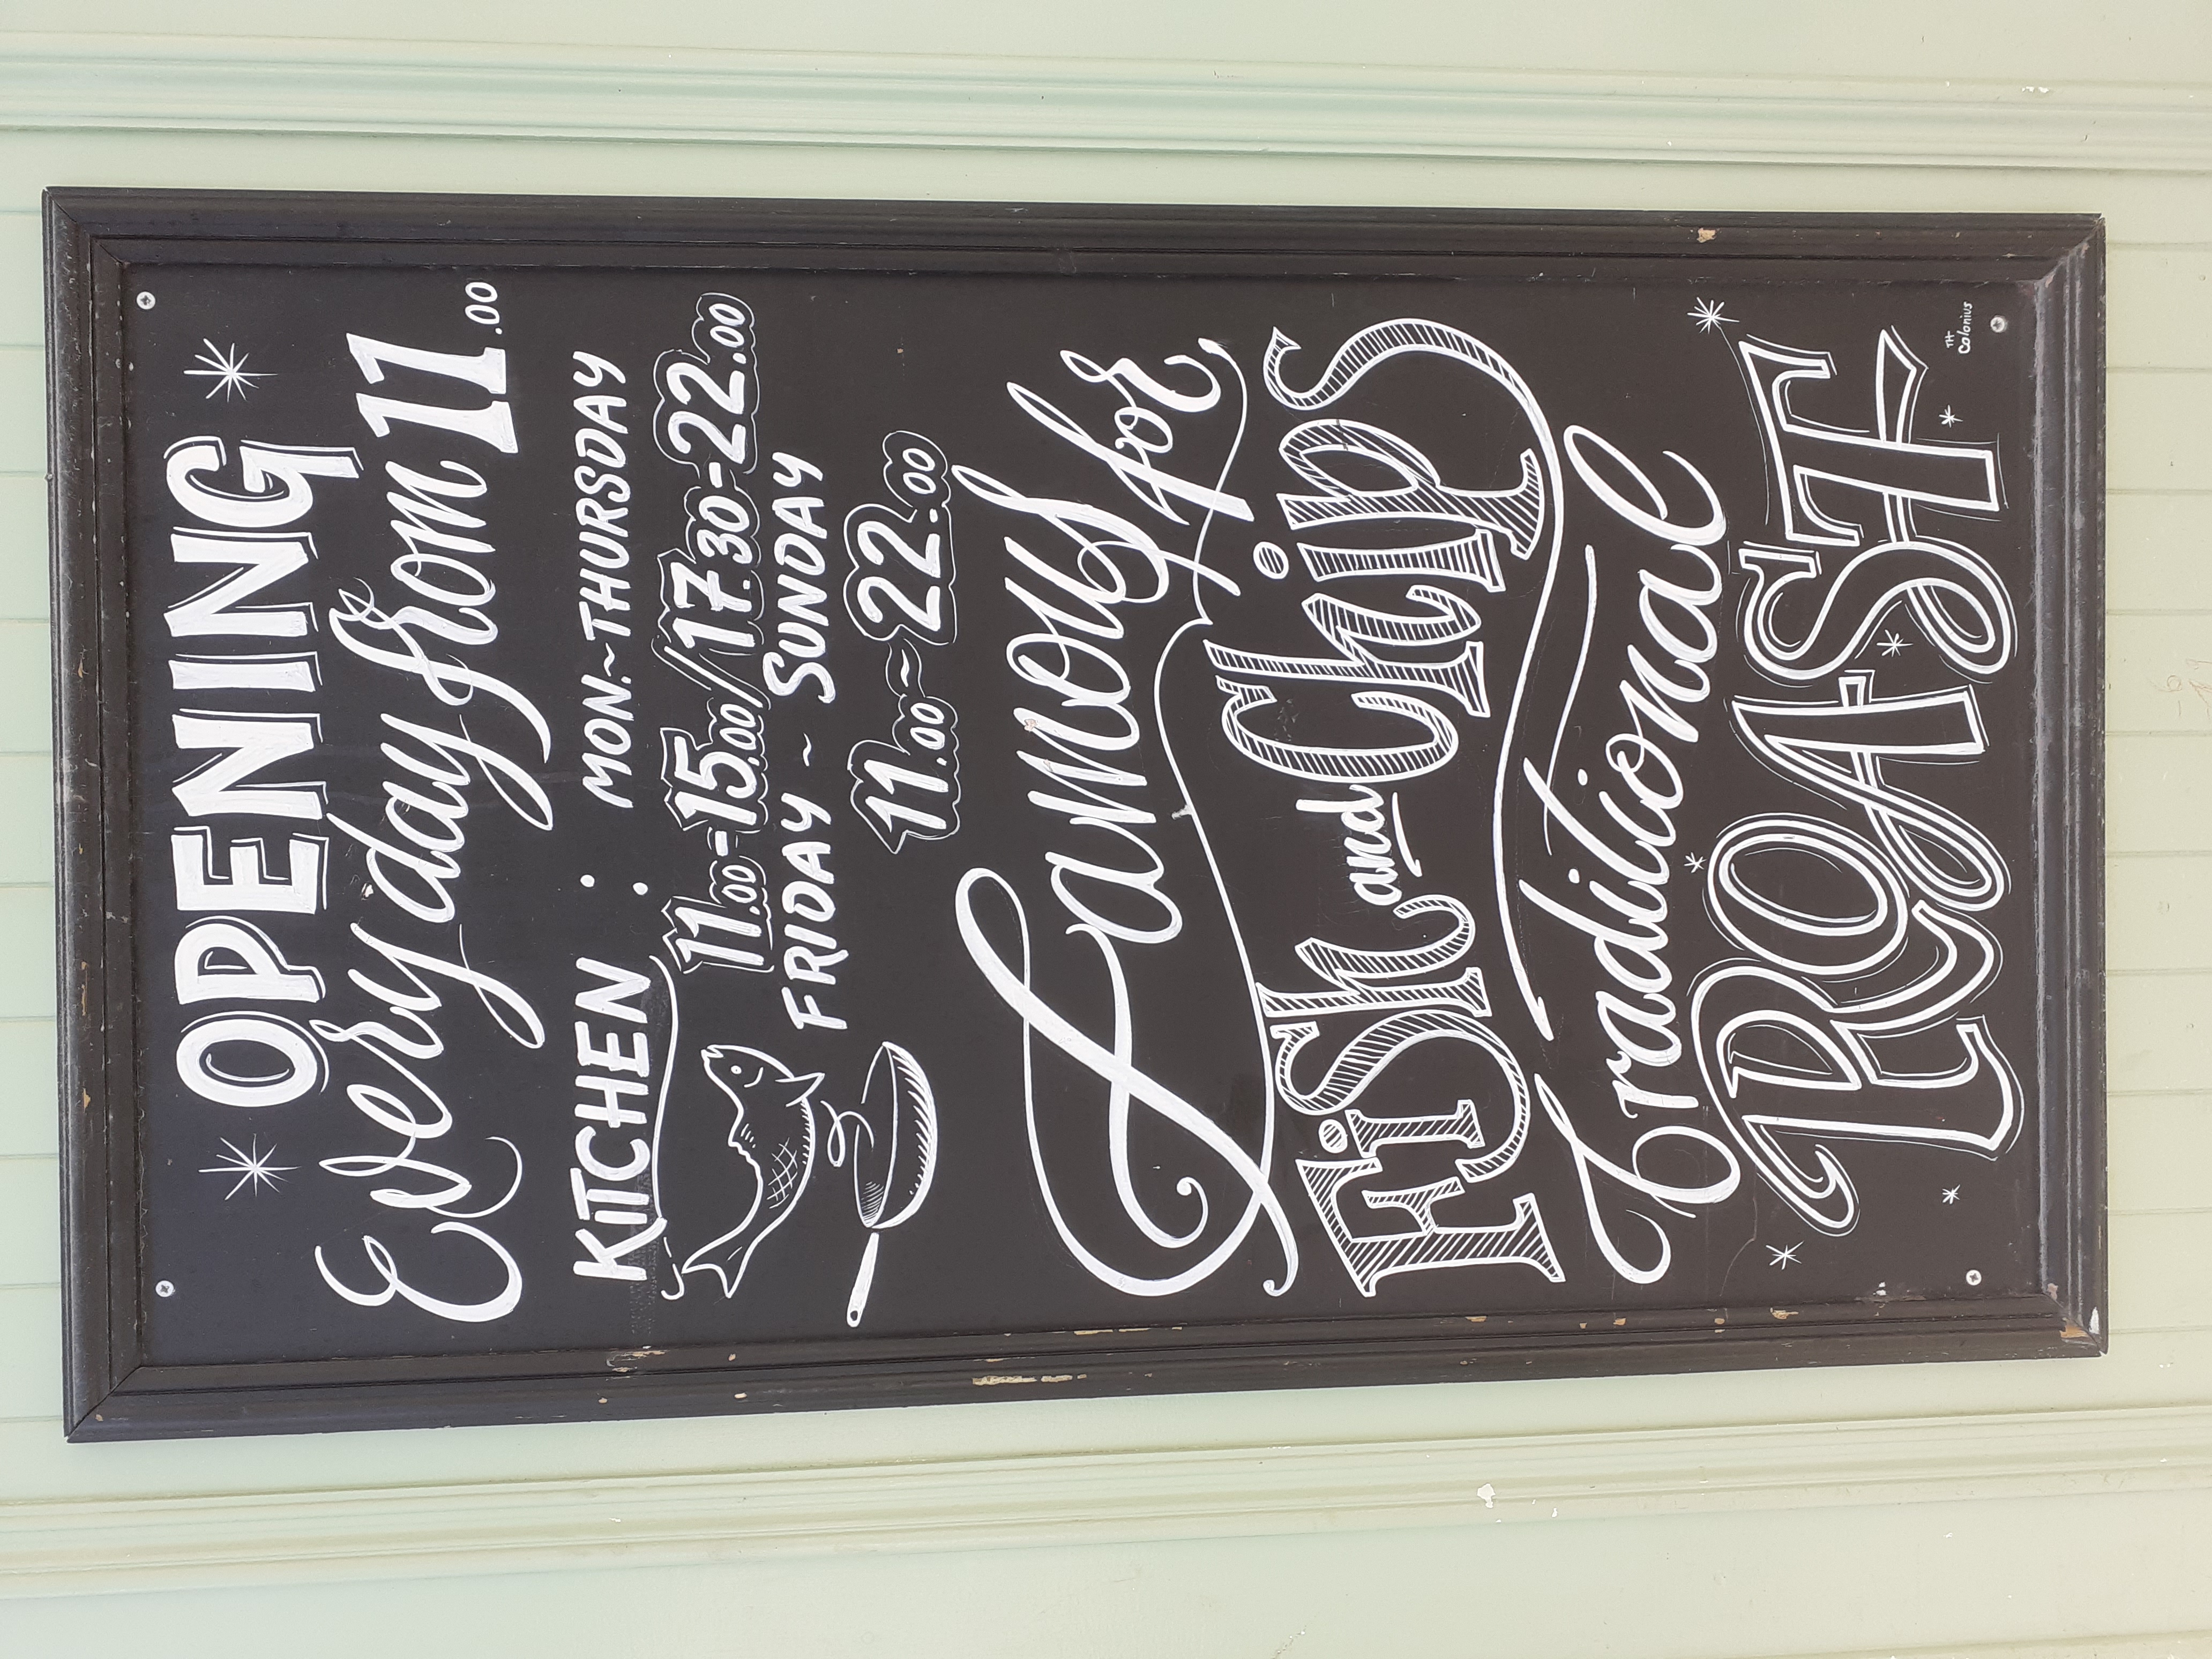 OPENING
Every day from 11.00
KITCHEN : MON.~THURSDAY
11.00-15.00/17.30-22.00
FRIDAY ~ SUNDAY
11.00~22.00
famous for
Fish and Chips
traditional
ROAST
TH
Colonius